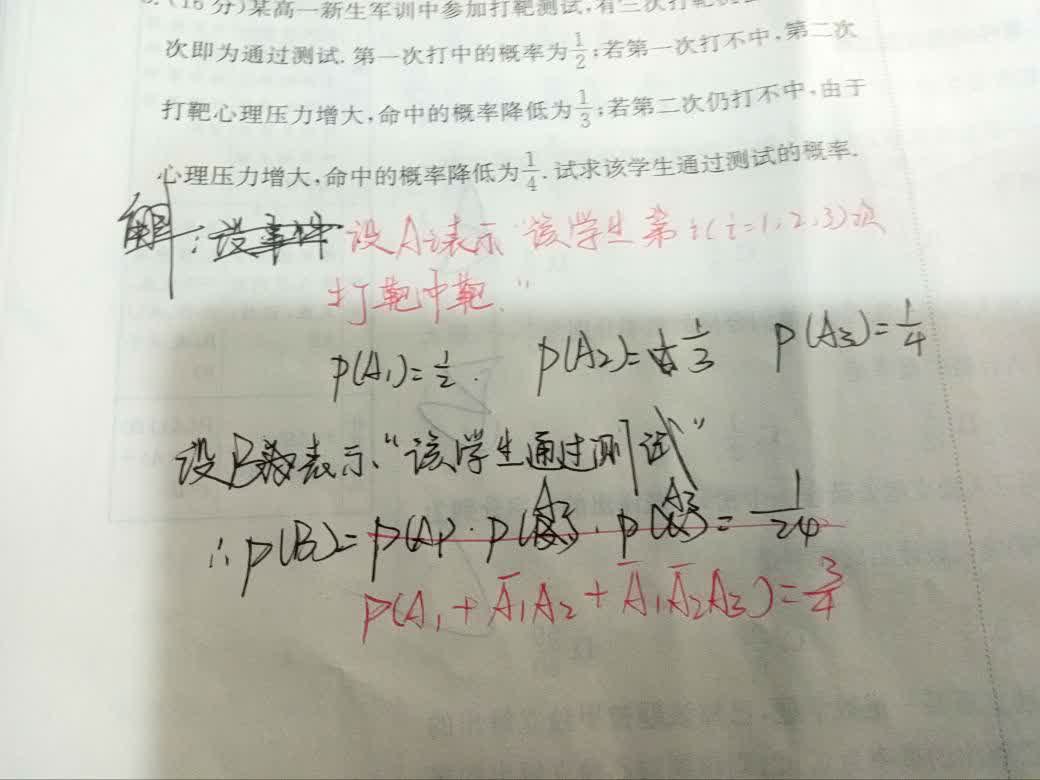 (16分)某高一新生军训中参加打靶测试,有三次打靶
次即为通过测试.第一次打中的概率为1/2;若第一次打不中,第二次
打靶心理压力增大,命中的概率降低为1/3;若第二次仍打不中,由于
心理压力增大,命中的概率降低为1/4.试求该学生通过测试的概率.
解:设事件 设Ai表示"该学生第i(i=1,2,3)次
打靶中靶."
P(A₁)=1/2. P(A₂)=1/3 P(A₃)=1/4
设B表示"该学生通过测试"
∴P(B)=P(A)·P(A₂)·P(A₃)=1/24
P(A₁+Ā₁A₂+Ā₁Ā₂A₃)=3/4